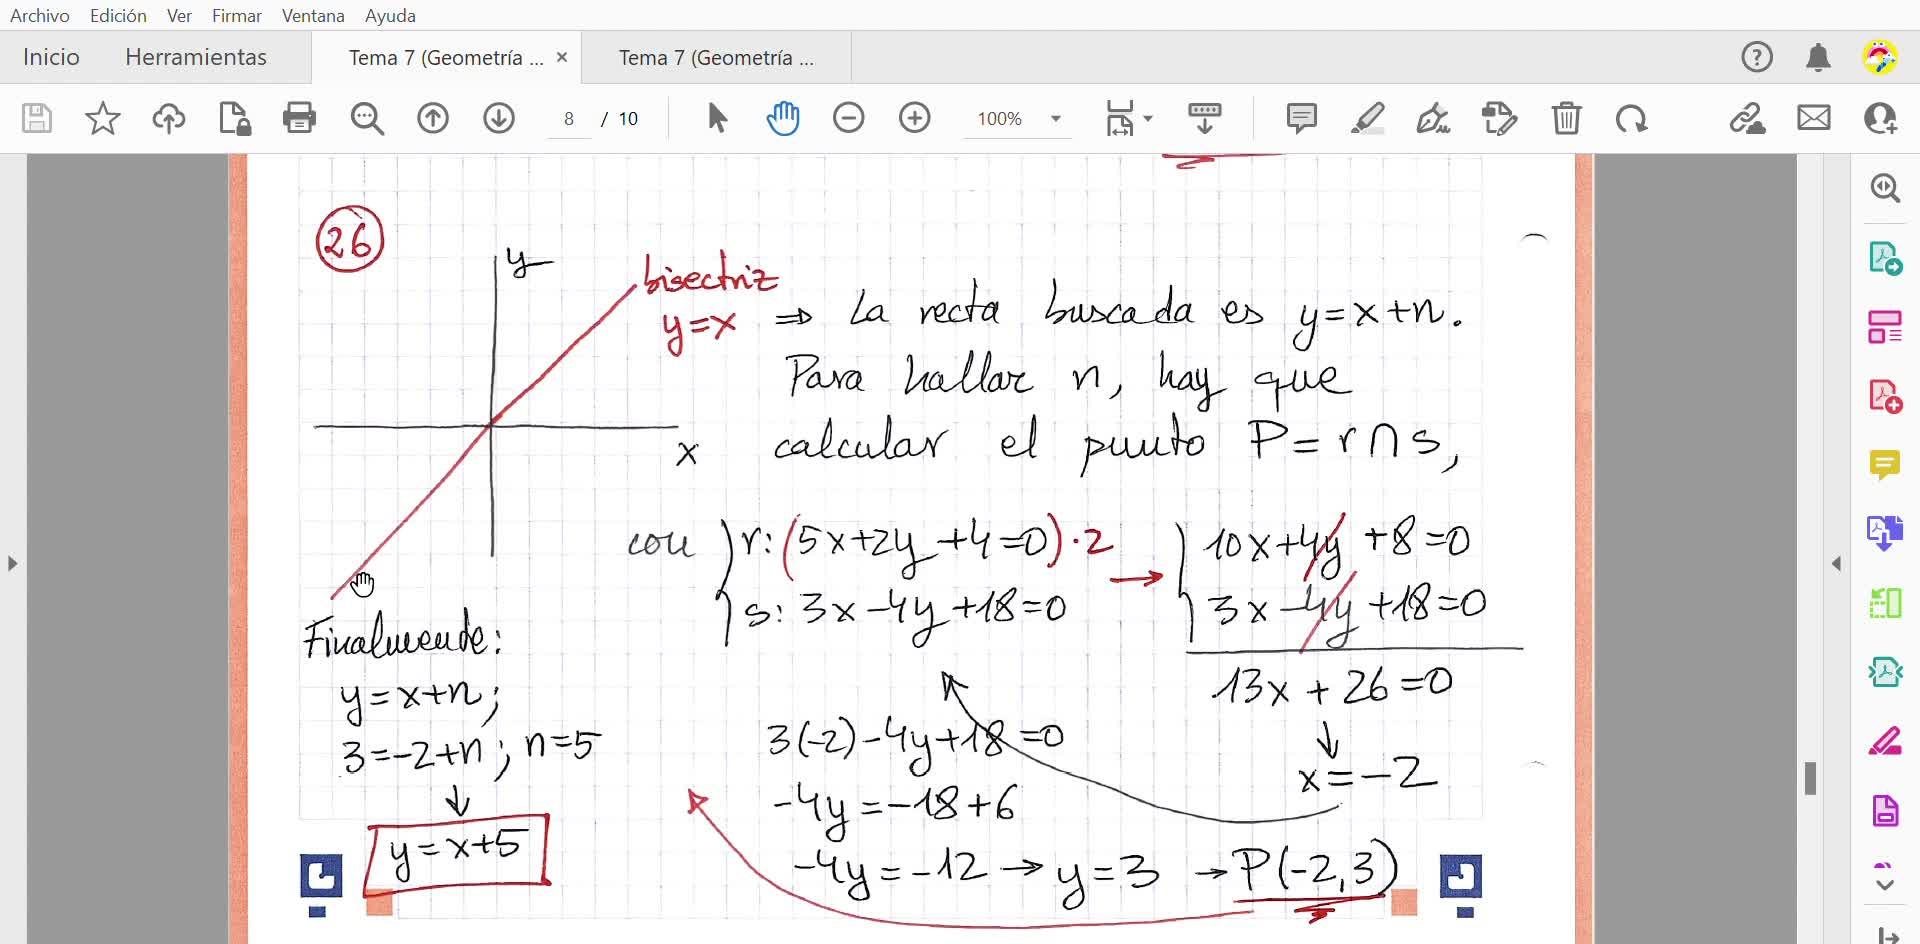 Archivo Edición Ver Firmar Ventana Ayuda
Inicio Herramientas Tema 7 (Geometría ... × Tema 7 (Geometría ...
8 / 10 100%
26
y
x
bisectriz
y=x
⇒ La recta buscada es y=x+n.
Para hallar n, hay que
calcular el punto P=r∩s,
con
r: (5x+2y+4=0)·2
s: 3x-4y+18=0
→
10x+4y+8=0
3x-4y+18=0
13x+26=0
↓
x=-2
3(-2)-4y+18=0
-4y=-18+6
-4y=-12 → y=3 → P(-2,3)
Finalmente:
y=x+n;
3=-2+n; n=5
↓
y=x+5